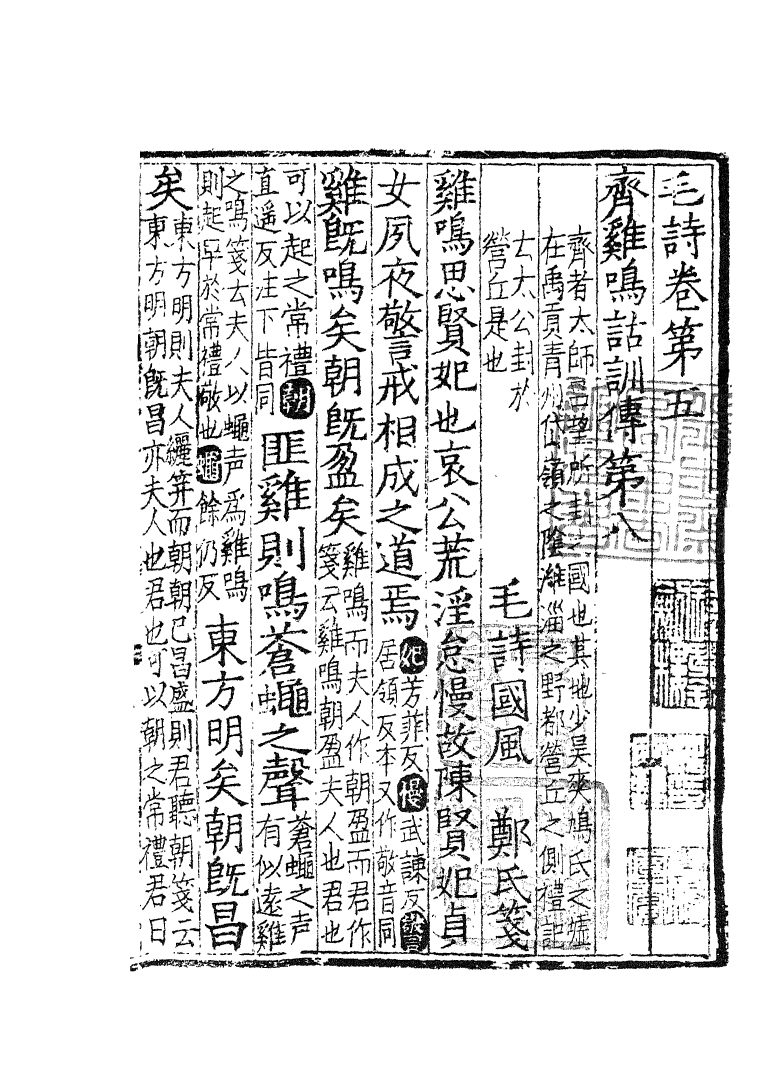 毛詩卷第五
齊雞鳴詁訓傳第八
齊者太師呂望所封之國也其地少昊爽鳩氏之墟
在禹貢青州岱嶺之陰濰淄之野都營丘之側禮記
云太公封於
營丘是也
毛詩國風　鄭氏箋
雞鳴思賢妃也哀公荒淫怠慢故陳賢妃貞
女夙夜警戒相成之道焉
妃芳菲反慢武諫反警
居領反本又作敬音同
雞旣鳴矣朝旣盈矣
雞鳴而夫人作朝盈而君作
箋云雞鳴朝盈夫人也君也
可以起之常禮朝
直遥反注下皆同
匪雞則鳴蒼蠅之聲
蒼蠅之声
有似遠雞
之鳴箋云夫人以蠅声為雞鳴
則起早於常禮敬也蠅餘仍反
東方明矣朝旣昌
矣
東方明則夫人纚笄而朝朝已昌盛則君聽朝箋云
東方明朝旣昌亦夫人也君也可以朝之常禮君日